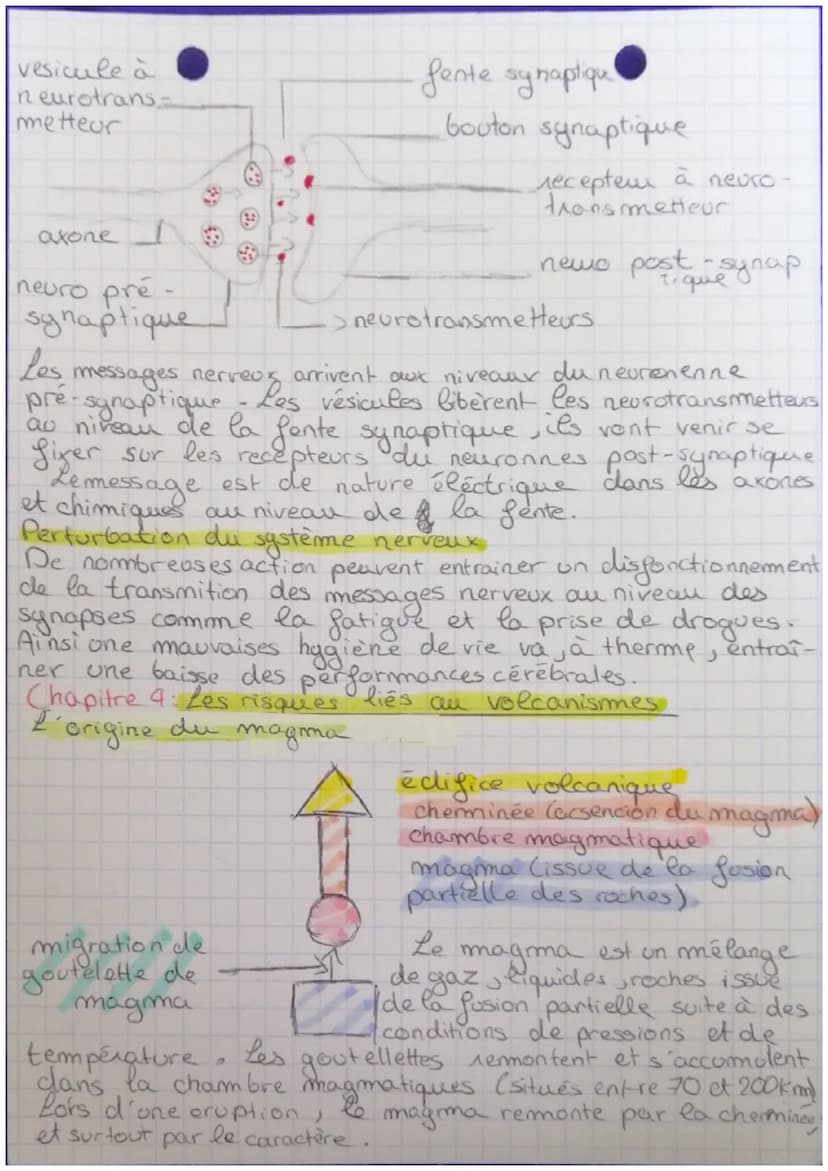 vesicule à
neurotrans-
metteur
axone
neuro pré-
synaptique
fente synaptiqu
bouton synaptique
recepteur à neuro-
transmetteur
neuro post-synap
tique
neurotransmetteurs
Les messages nerveox arrivent aux niveaux du neurenenne
pré-synaptique - Les vésicules libèrent les neurotransmetteurs
au niveau de la fente synaptique, ils vont venir se
fixer sur les recépteurs du neuronnes post-synaptique
Le message est de nature éléctrique dans les axones
et chimiques au niveau de la fente.
Perturbation du système nerveux
De nombreoses action peuvent entrainer un disfonctionnement
de la transmition des messages nerveux au niveau des
synapses comme la fatigue et la prise de drogues.
Ainsi one mauvaises hygiène de vie va, à therme, entraî-
ner une baisse des performances cérébrales.
Chapitre 4: Les risques liés au volcanismes
L'origine du magma
édifice volcanique
cheminée (acsencion du magma)
chambre magmatique
magma (issue de la fosion
partielle des roches)
migration de
goutelette de
magma
Le magma est un mélange
de gaz, liquides, roches issue
de la fusion partielle suite à des
conditions de pressions et de
température. Les goutellettes remontent et s'accumolent
dans la chambre magmatiques (situés entre 70 et 200km)
Lors d'une eruption, le magma remonte par la cheminée
et surtout par le caractère.